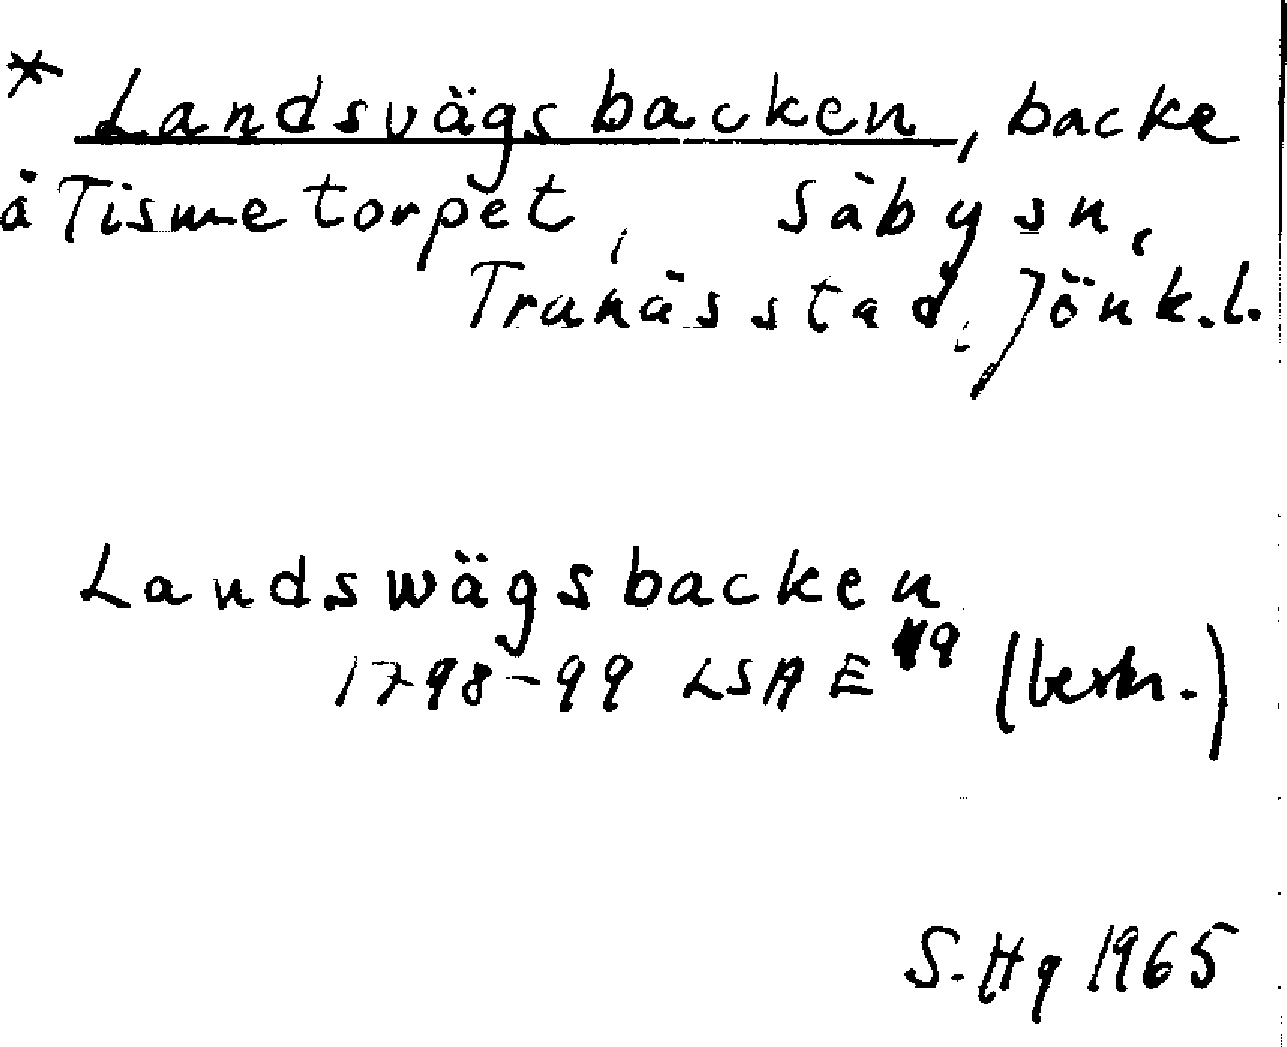 * Landsvägsbacken, backe
å Tismetorpet, Säby sn,
Tranås stad, Jönk.l.
Landswägsbacken
1798-99 LSA E 119 (beskr.)
S. Hg 1965